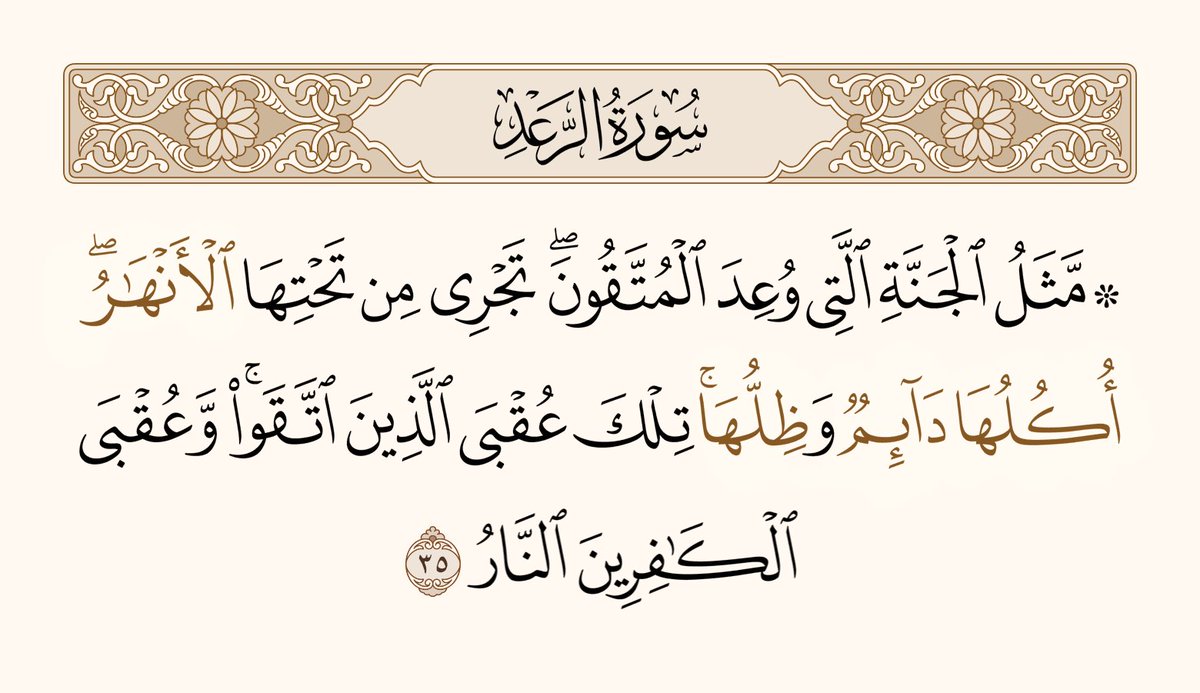 سُورَةُ الرَّعْدِ
۞ مَّثَلُ ٱلْجَنَّةِ ٱلَّتِى وُعِدَ ٱلْمُتَّقُونَۖ تَجْرِى مِن تَحْتِهَا ٱلْأَنْهَـٰرُۖ
أُكُلُهَا دَآئِمٌ وَظِلُّهَاۚ تِلْكَ عُقْبَى ٱلَّذِينَ ٱتَّقَوا۟ۚ وَّعُقْبَى
ٱلْكَـٰفِرِينَ ٱلنَّارُ ٣٥